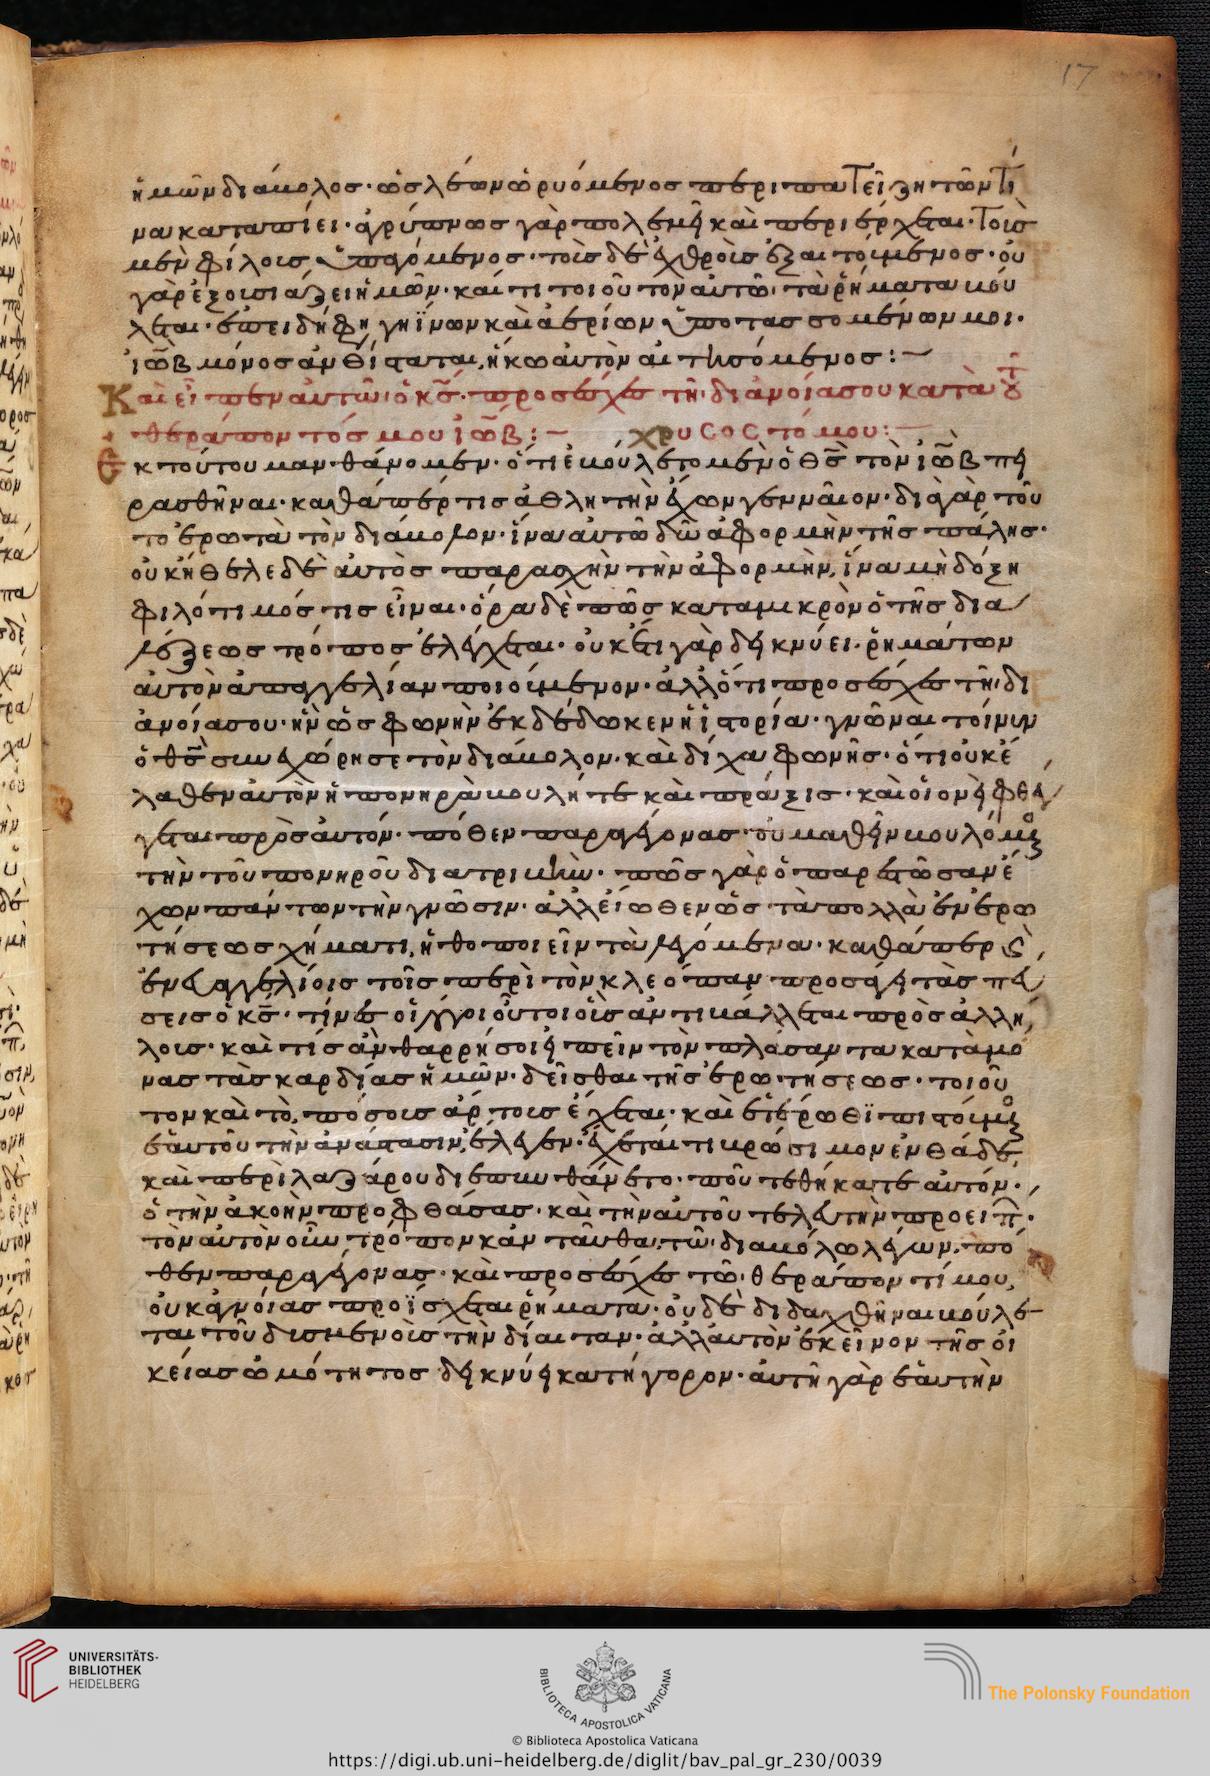 17
ἡμῶν διάβολος· ὡς λέων ὠρυόμενος περιπατεῖ ζητῶν τί
να καταπίει· ἀγρύπνως γὰρ πολεμεῖ καὶ περιέρχεται· τοῖς
μὲν φίλοις
γὰρ ἐξουσιάζει ἡμῶν· καί τι ποιοῦτον αὐτῶ· τὰ ῥήματα βού
λεται· ἐπειδή φη γηΐνων καὶ ἀερίων ὑποτασσομένων μοι·
ἰὼβ μόνος ἀνθίσταται, ἥκω αὐτὸν αἰτησόμενος:~
Καὶ εἶπεν αὐτῶ ὁ κς̅· προσέσχες τῆ διανοία σου κατὰ τοῦ
θεράποντός μου ἰώβ:~ χρυσοστόμου:~
Ἐκ τούτου μανθάνομεν· ὅτι ἐβούλετο μὲν ὁ θς̅ τὸν ἰὼβ πει
ρασθῆναι· καθάπέρ τις ἀθλητὴν ἔχων γενναῖον· διὸ γὰρ τοῦ
το ἐρωτᾶ τὸν διάβολον· ἵνα αὐτῶ δῶ ἀφορμὴν τῆς πάλης·
οὐκ ἤθελε δὲ αὐτὸς παρασχεῖν τὴν ἀφορμὴν, ἵνα μὴ δόξη
φιλότιμός τις εἶναι· ὅρα δὲ πῶς καταμικρὸν ὁ τῆς δια
λέξεως τρόπος ἐλέγχεται· οὐκέτι γὰρ δεικνύει· ῥημάτων
αὐτὸν ἀπαγγελίαν ποιούμενον· ἀλλ' ὅτι προσέσχες τῆ δι
ανοία σου· ἣν ὡς φωνὴν ἐκδέδωκεν ἡ ἱστορία· γνῶναι τοίνυν
ὁ θς̅ συνεχώρησε τὸν διάβολον· καὶ δίχα φωνῆς· ὅτι οὐκ ἔ
λαθεν αὐτὸν ἡ πονηρὰ βουλή τε καὶ πρᾶξις· καὶ οἱονεὶ φθέγ
γεται πρὸς αὐτόν· πόθεν παραγέγονας· οὐ μαθεῖν βουλόμενος
τὴν τοῦ πονηροῦ διατριβὴν· πῶς γὰρ ὁ παρ' ἑτῶσαν ἔ
χων πάντων τὴν γνῶσιν· ἀλλ' εἴωθεν ὡς τὰ πολλὰ ἐν ἐρω
τήσεως σχήματι, ἠθοποιεῖν τὰ λεγόμενα· καθάπερ καὶ
ἐν εὐαγγελίοις τοῖς περὶ τὸν κλεόπαν προσάγει τὰς πεύ
σεις ὁ κς̅· τίνες οἱ λόγοι οὗτοι οὓς ἀντιβάλλεται πρὸς ἀλλή
λοις· καὶ τίς ἂν θαρρήσοι εἰπεῖν τὸν πλάσαντα καταμό
νας τὰς καρδίας ἡμῶν· δεῖσθαι τῆς ἐρωτήσεως· τοιοῦ
τον καὶ τὸ, πόσους ἄρτους ἔχεται· καὶ ἑτέρωθϊ πιστούμενος
ἑαυτοῦ τὴν ἀνάστασιν, ἔλεγεν· ἔχεταί τι βρώσιμον ἐνθάδε,
καὶ περὶ λαζάρου διεπυνθάνετο· ποῦ τεθήκατε αὐτόν·
ὁ τὴν ἀκοὴν προφθάσας· καὶ τὴν αὐτοῦ τελευτὴν προειπ·
τὸν αὐτὸν οὖν τρόπον κἀνταῦθα, τῶ διαβόλω λέγων· πό
θεν παραγέγονας· καὶ προσέσχες τῶ θεράποντί μου,
οὐκ ἀγνοίας προΐσχεται ῥήματα· οὐδὲ διδαχθῆναι βούλε
ται τοῦ δυσμενοῦς τὴν δίαιταν· ἀλλ' αὐτὸν ἐκεῖνον τῆς οἰ
κείας ὠμότητος δεικνύει κατήγορον· αὐτὴ γὰρ ἑαυτὴν
UNIVERSITÄTS-
BIBLIOTHEK
HEIDELBERG
BIBLIOTECA APOSTOLICA VATICANA
The Polonsky Foundation
© Biblioteca Apostolica Vaticana
https://digi.ub.uni-heidelberg.de/diglit/bav_pal_gr_230/0039